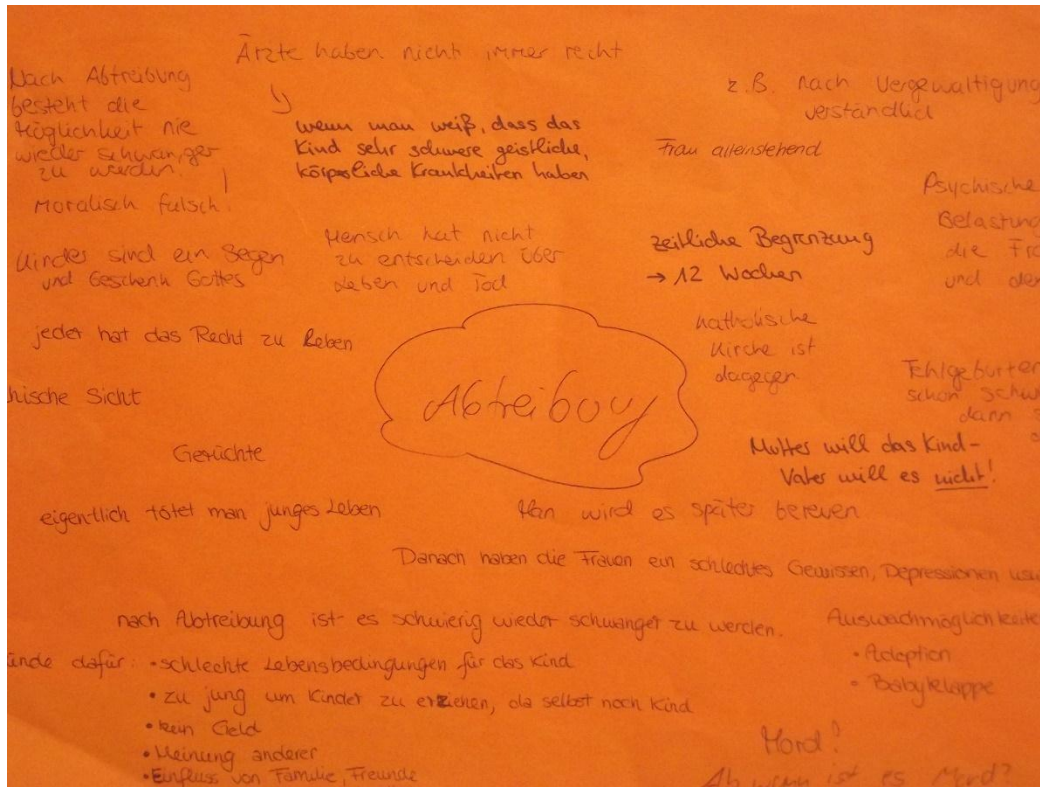 Ärzte haben nicht immer recht
Nach Abtreibung
besteht die
Möglichkeit nie
wieder schwanger
zu werden.
Moralisch falsch
wenn man weiß, dass das
Kind sehr schwere geistliche,
körperliche Krankheiten haben
z.B. nach Vergewaltigung
verständlich
Frau alleinstehend
Psychische
Belastung
die
und
Kinder sind ein Segen
und Geschenk Gottes
Mensch hat nicht
zu entscheiden über
Leben und Tod
zeitliche Begrenzung
→ 12 Wochen
jeder hat das Recht zu Leben
katholische
Kirche ist
dagegen
hische Sicht
Abtreibung
Fehlgeburten
schon
dann
Gerüchte
Mutter will das Kind-
Vater will es nicht!
eigentlich tötet man junges Leben
Man wird es später bereuen
Danach haben die Frauen ein schlechtes Gewissen, Depressionen usw
nach Abtreibung ist es schwierig wieder schwanger zu werden.
ünde dafür: • schlechte Lebensbedingungen für das Kind
• zu jung um Kinder zu erziehen, da selbst noch Kind
• kein Geld
• Meinung anderer
• Einfluss von Familie, Freunde
Ausweichmöglichkeite
• Adoption
• Babyklappe
Mord?
Ab wann ist es Mord?